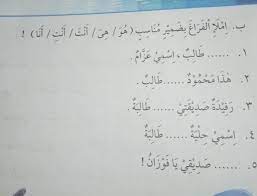 ب. اِمْلَإِ الْفَرَاغَ بِضَمِيْرٍ مُنَاسِبٍ (هُوَ / هِيَ / أَنْتَ / أَنْتِ / أَنَا) !
١. ...... طَالِبٌ، اِسْمِيْ عَزَّامٌ.
٢. هٰذَا مَحْمُوْدٌ ...... طَالِبٌ.
٣. رَفِيْدَةُ صَدِيْقَتِيْ ...... طَالِبَةٌ.
٤. اِسْمِيْ حِلْيَةُ ...... طَالِبَةٌ
٥. ...... صَدِيْقِيْ يَا فَوْزَانُ !